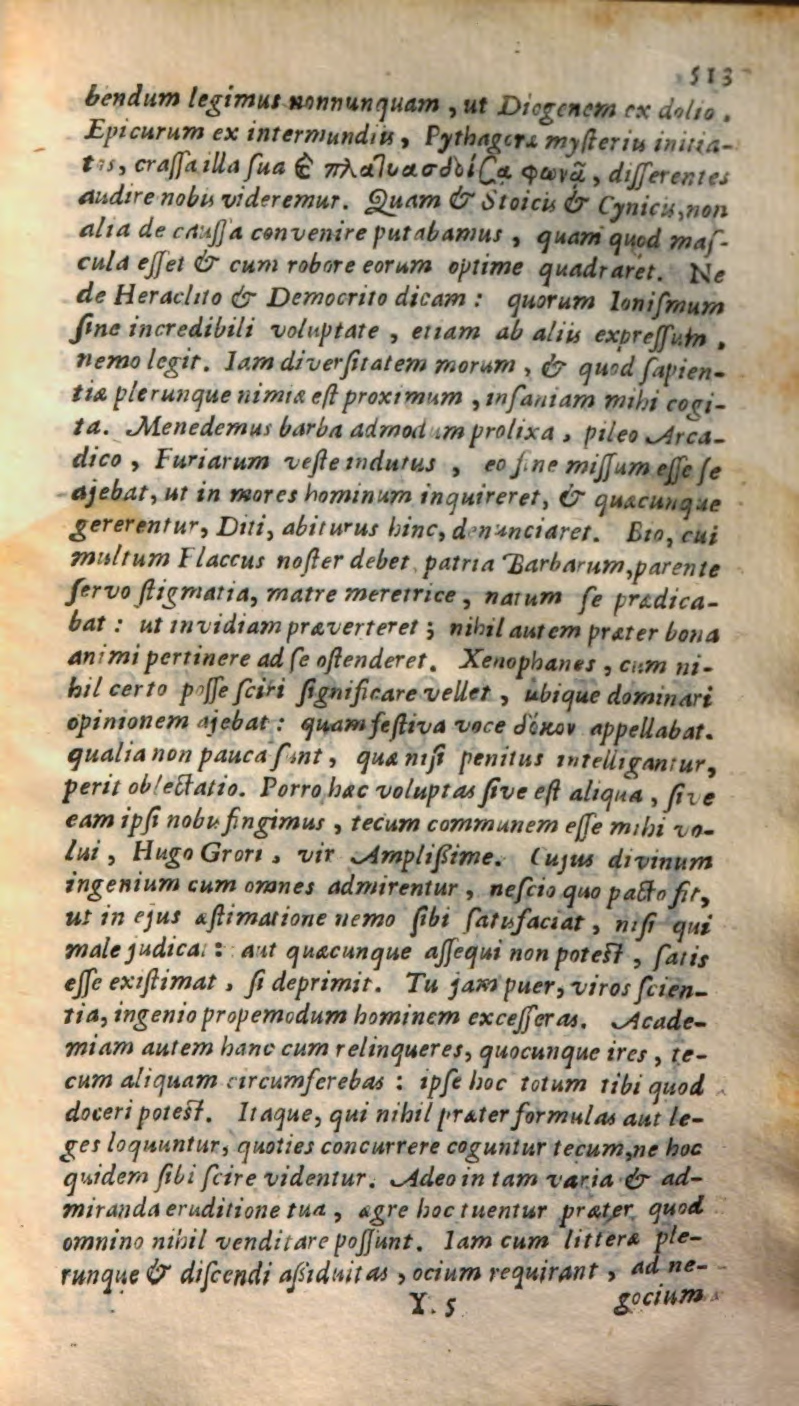 513
bendum legimus nonnunquam , ut Diogenem ex dolio ,
Epicurum ex intermundiis , Pythagoræ mysteriis initia-
tos, crassa illa sua & πλατυασδοίσᾳ φωνᾷ , differentes
audire nobis videremur. Quam & Stoicis & Cynicis,non
alia de caussa convenire putabamus , quam quod maſ-
cula eſſet & cum robore eorum optime quadraret. Ne
de Heraclito & Democrito dicam : quorum Ioniſmum
ſine incredibili voluptate , etiam ab aliis expreſſum ,
nemo legit. Iam diverſitatem morum , & quod ſapien-
tiæ plerunque nimiæ eſt proximum , inſaniam mihi cogi-
ta. Menedemus barba admodum prolixa , pileo Arca-
dico , Furiarum veſte indutus , eo fine miſſum eſſe ſe
ajebat, ut in mores hominum inquireret, & quæcunque
gererentur, Diti, abiturus hinc, denunciaret. Bio, cui
multum Flaccus noſter debet, patria Barbarum,parente
ſervo ſtigmatia, matre meretrice , natum ſe prædica-
bat : ut invidiam præverteret ; nihil autem præter bona
animi pertinere ad ſe oſtenderet. Xenophanes , cum ni-
hil certo poſſe ſciri ſignificare vellet , ubique dominari
opinionem ajebat : quam feſtiva voce δόκον appellabat.
qualia non pauca ſunt , quæ niſi penitus intelligantur,
perit oblectatio. Porro hæc voluptas ſive eſt aliqua , ſive
eam ipſi nobis fingimus , tecum communem eſſe mihi vo-
lui , Hugo Groti , vir Ampliſſime. Cujus divinum
ingenium cum omnes admirentur , neſcio quo pacto fit,
ut in ejus æſtimatione nemo ſibi ſatisfaciat , niſi qui
male judicat : aut quæcunque aſſequi non poteſt , ſatis
eſſe exiſtimat , ſi deprimit. Tu jam puer, viros ſcien-
tia, ingenio propemodum hominem exceſſeras. Acade-
miam autem hanc cum relinqueres, quocunque ires , te-
cum aliquam circumferebas : ipſe hoc totum tibi quod
doceri poteſt. Itaque, qui nihil præter formulas aut le-
ges loquuntur, quoties concurrere coguntur tecum,ne hoc
quidem ſibi ſcire videntur. Adeo in tam varia & ad-
miranda eruditione tua , ægre hoc tuentur præter quod
omnino nihil venditare poſſunt. Iam cum litteræ ple-
runque & diſcendi aſſiduitas , ocium requirant , ad ne-
Y. 5 gocium